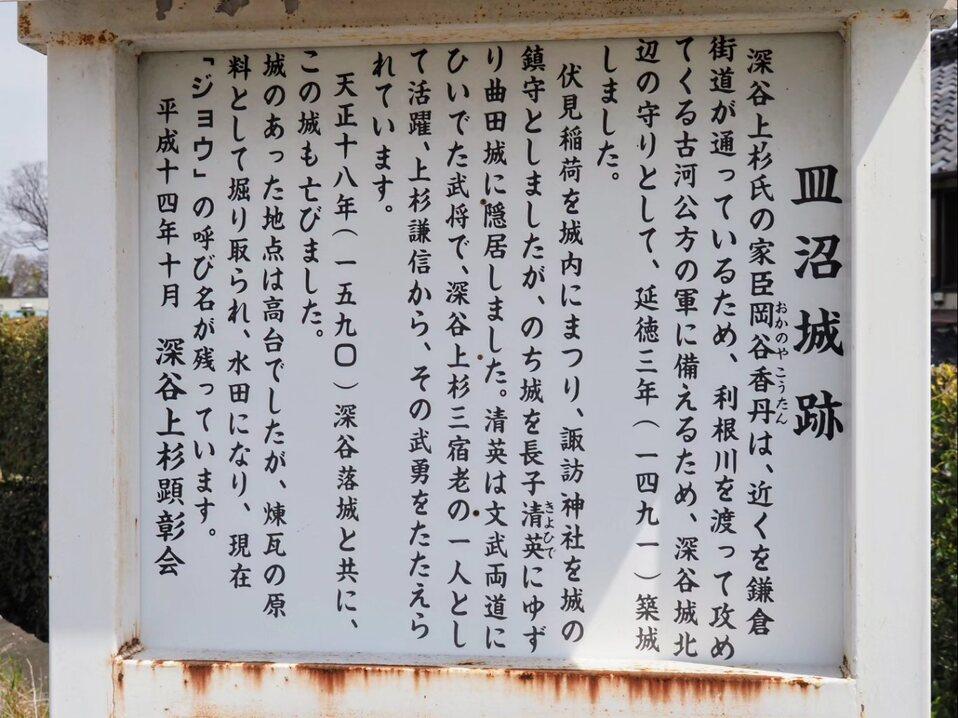 皿沼城跡
深谷上杉氏の家臣岡谷香丹は、近くを鎌倉
おかのやこうたん
街道が通っているため、利根川を渡って攻め
てくる古河公方の軍に備えるため、深谷城北
辺の守りとして、延徳三年(一四九一)築城
しました。
伏見稲荷を城内にまつり、諏訪神社を城の
鎮守としましたが、のち城を長子清英にゆず
きよひで
り曲田城に隠居しました。清英は文武両道に
ひいでた武将で、深谷上杉三宿老の一人とし
て活躍、上杉謙信から、その武勇をたたえら
れています。
天正十八年(一五九〇)深谷落城と共に、
この城も亡びました。
城のあった地点は高台でしたが、煉瓦の原
料として堀り取られ、水田になり、現在
「ジョウ」の呼び名が残っています。
平成十四年十月 深谷上杉顕彰会